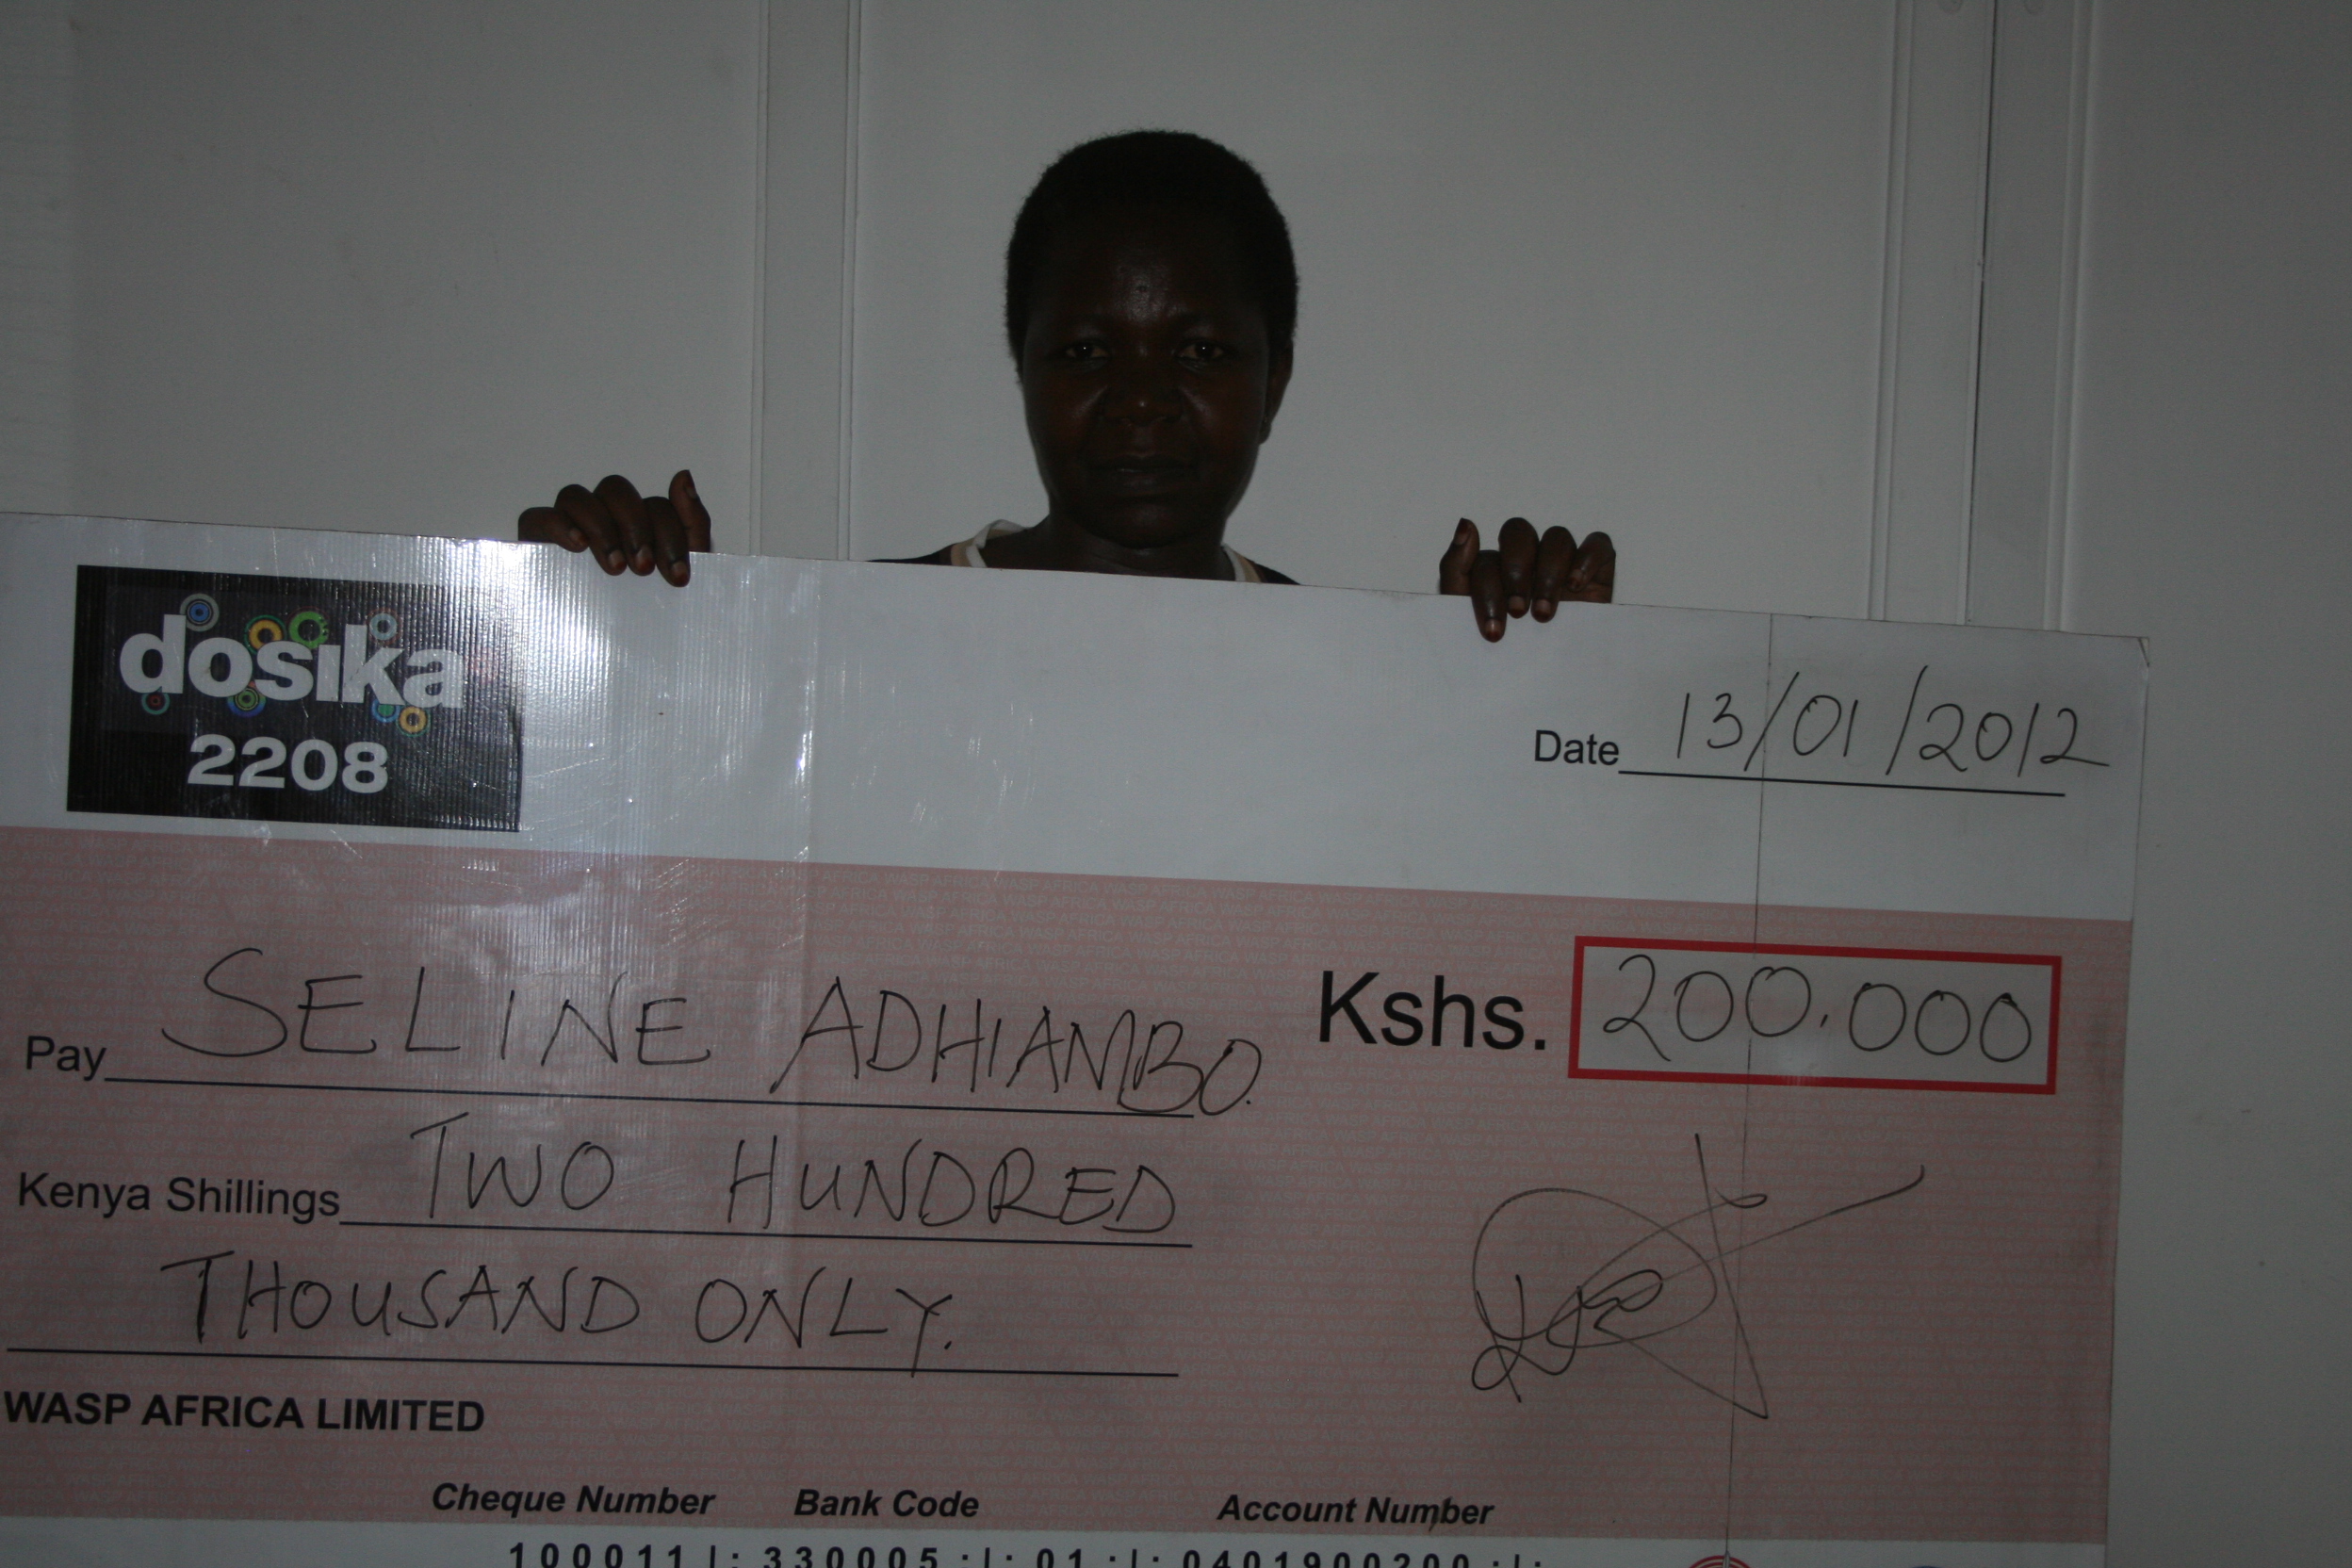 dosika
2208
Date 13/01/2012
Pay SELINE ADHIAMBO.
Kshs. 200,000
Kenya Shillings TWO HUNDRED
THOUSAND ONLY.
WASP AFRICA LIMITED
Cheque Number Bank Code Account Number
100011 |: 330005 :|: 01 :|: 0401900200 :|: